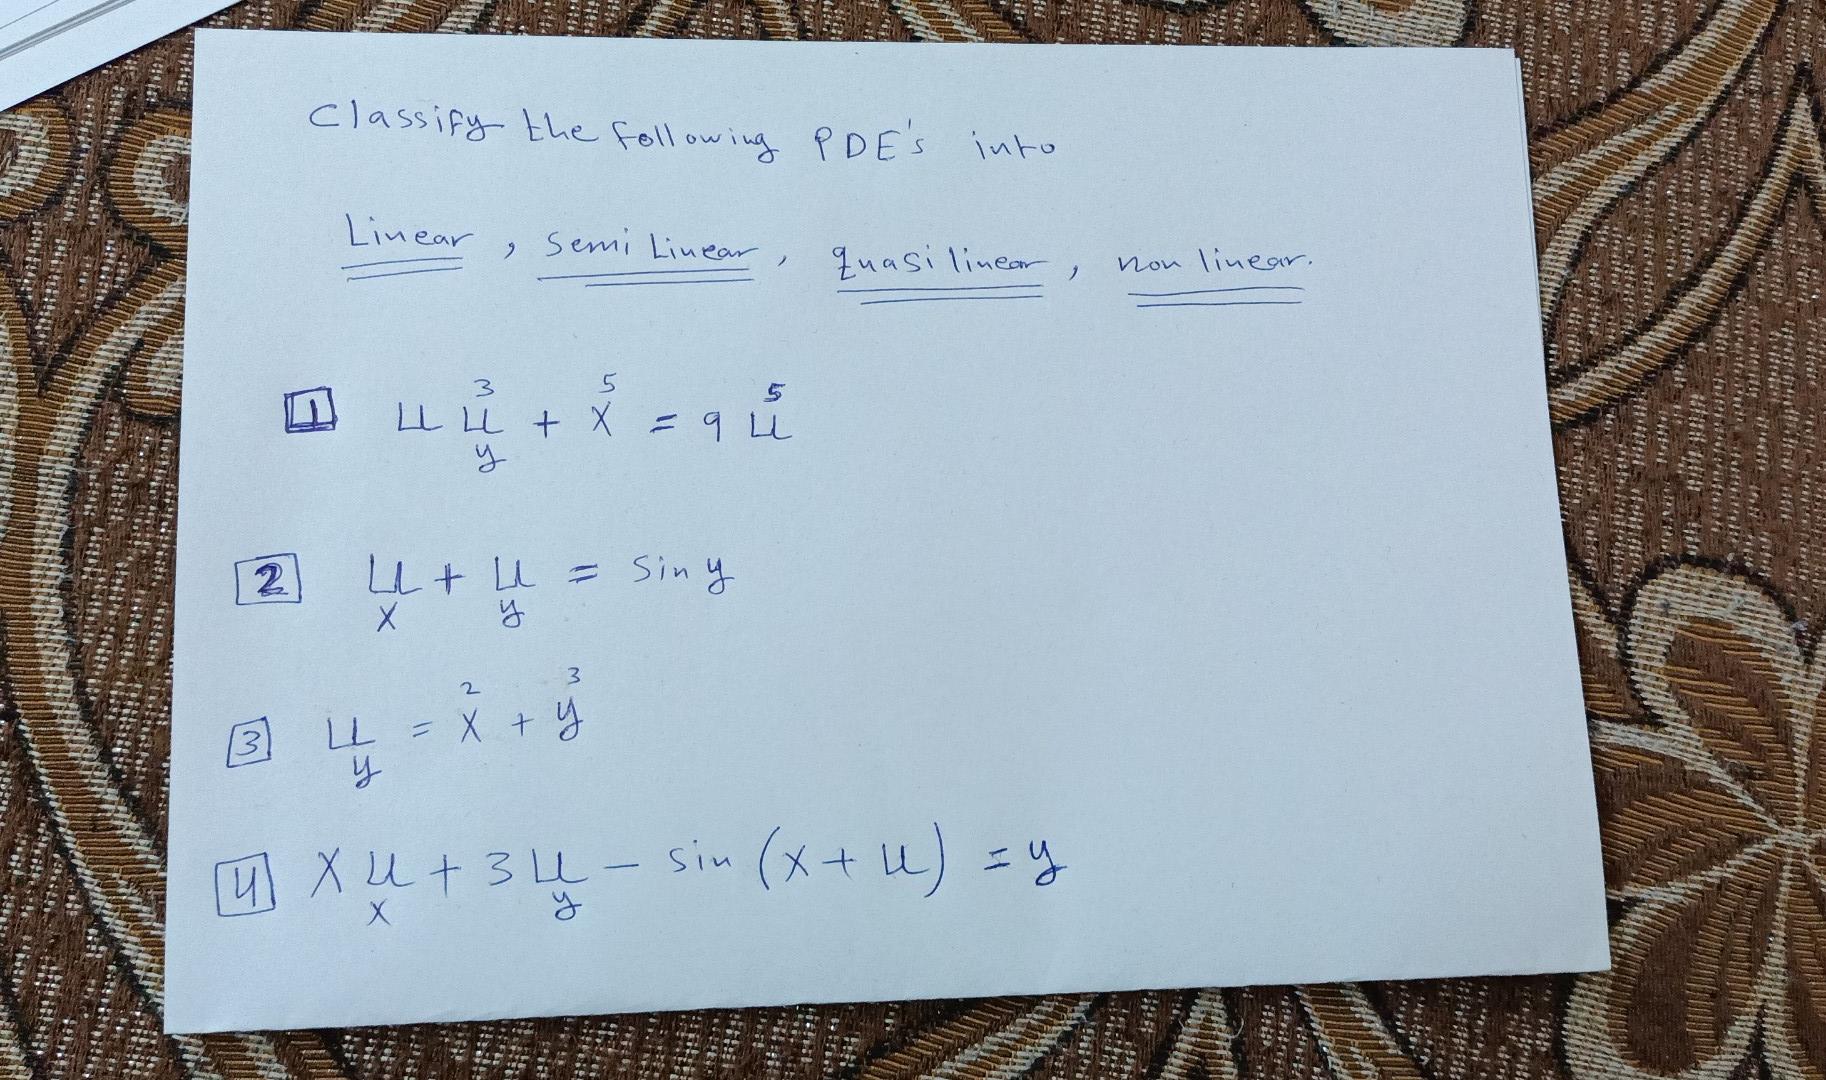 Classify the following PDE's into
Linear, semi Linear, quasi linear, non linear.
1 u u_y^3 + x^5 = 9 u^5
2 u_x + u_y = sin y
3 u_y = x^2 + y^3
4 x u_x + 3 u_y - sin (x + u) = y